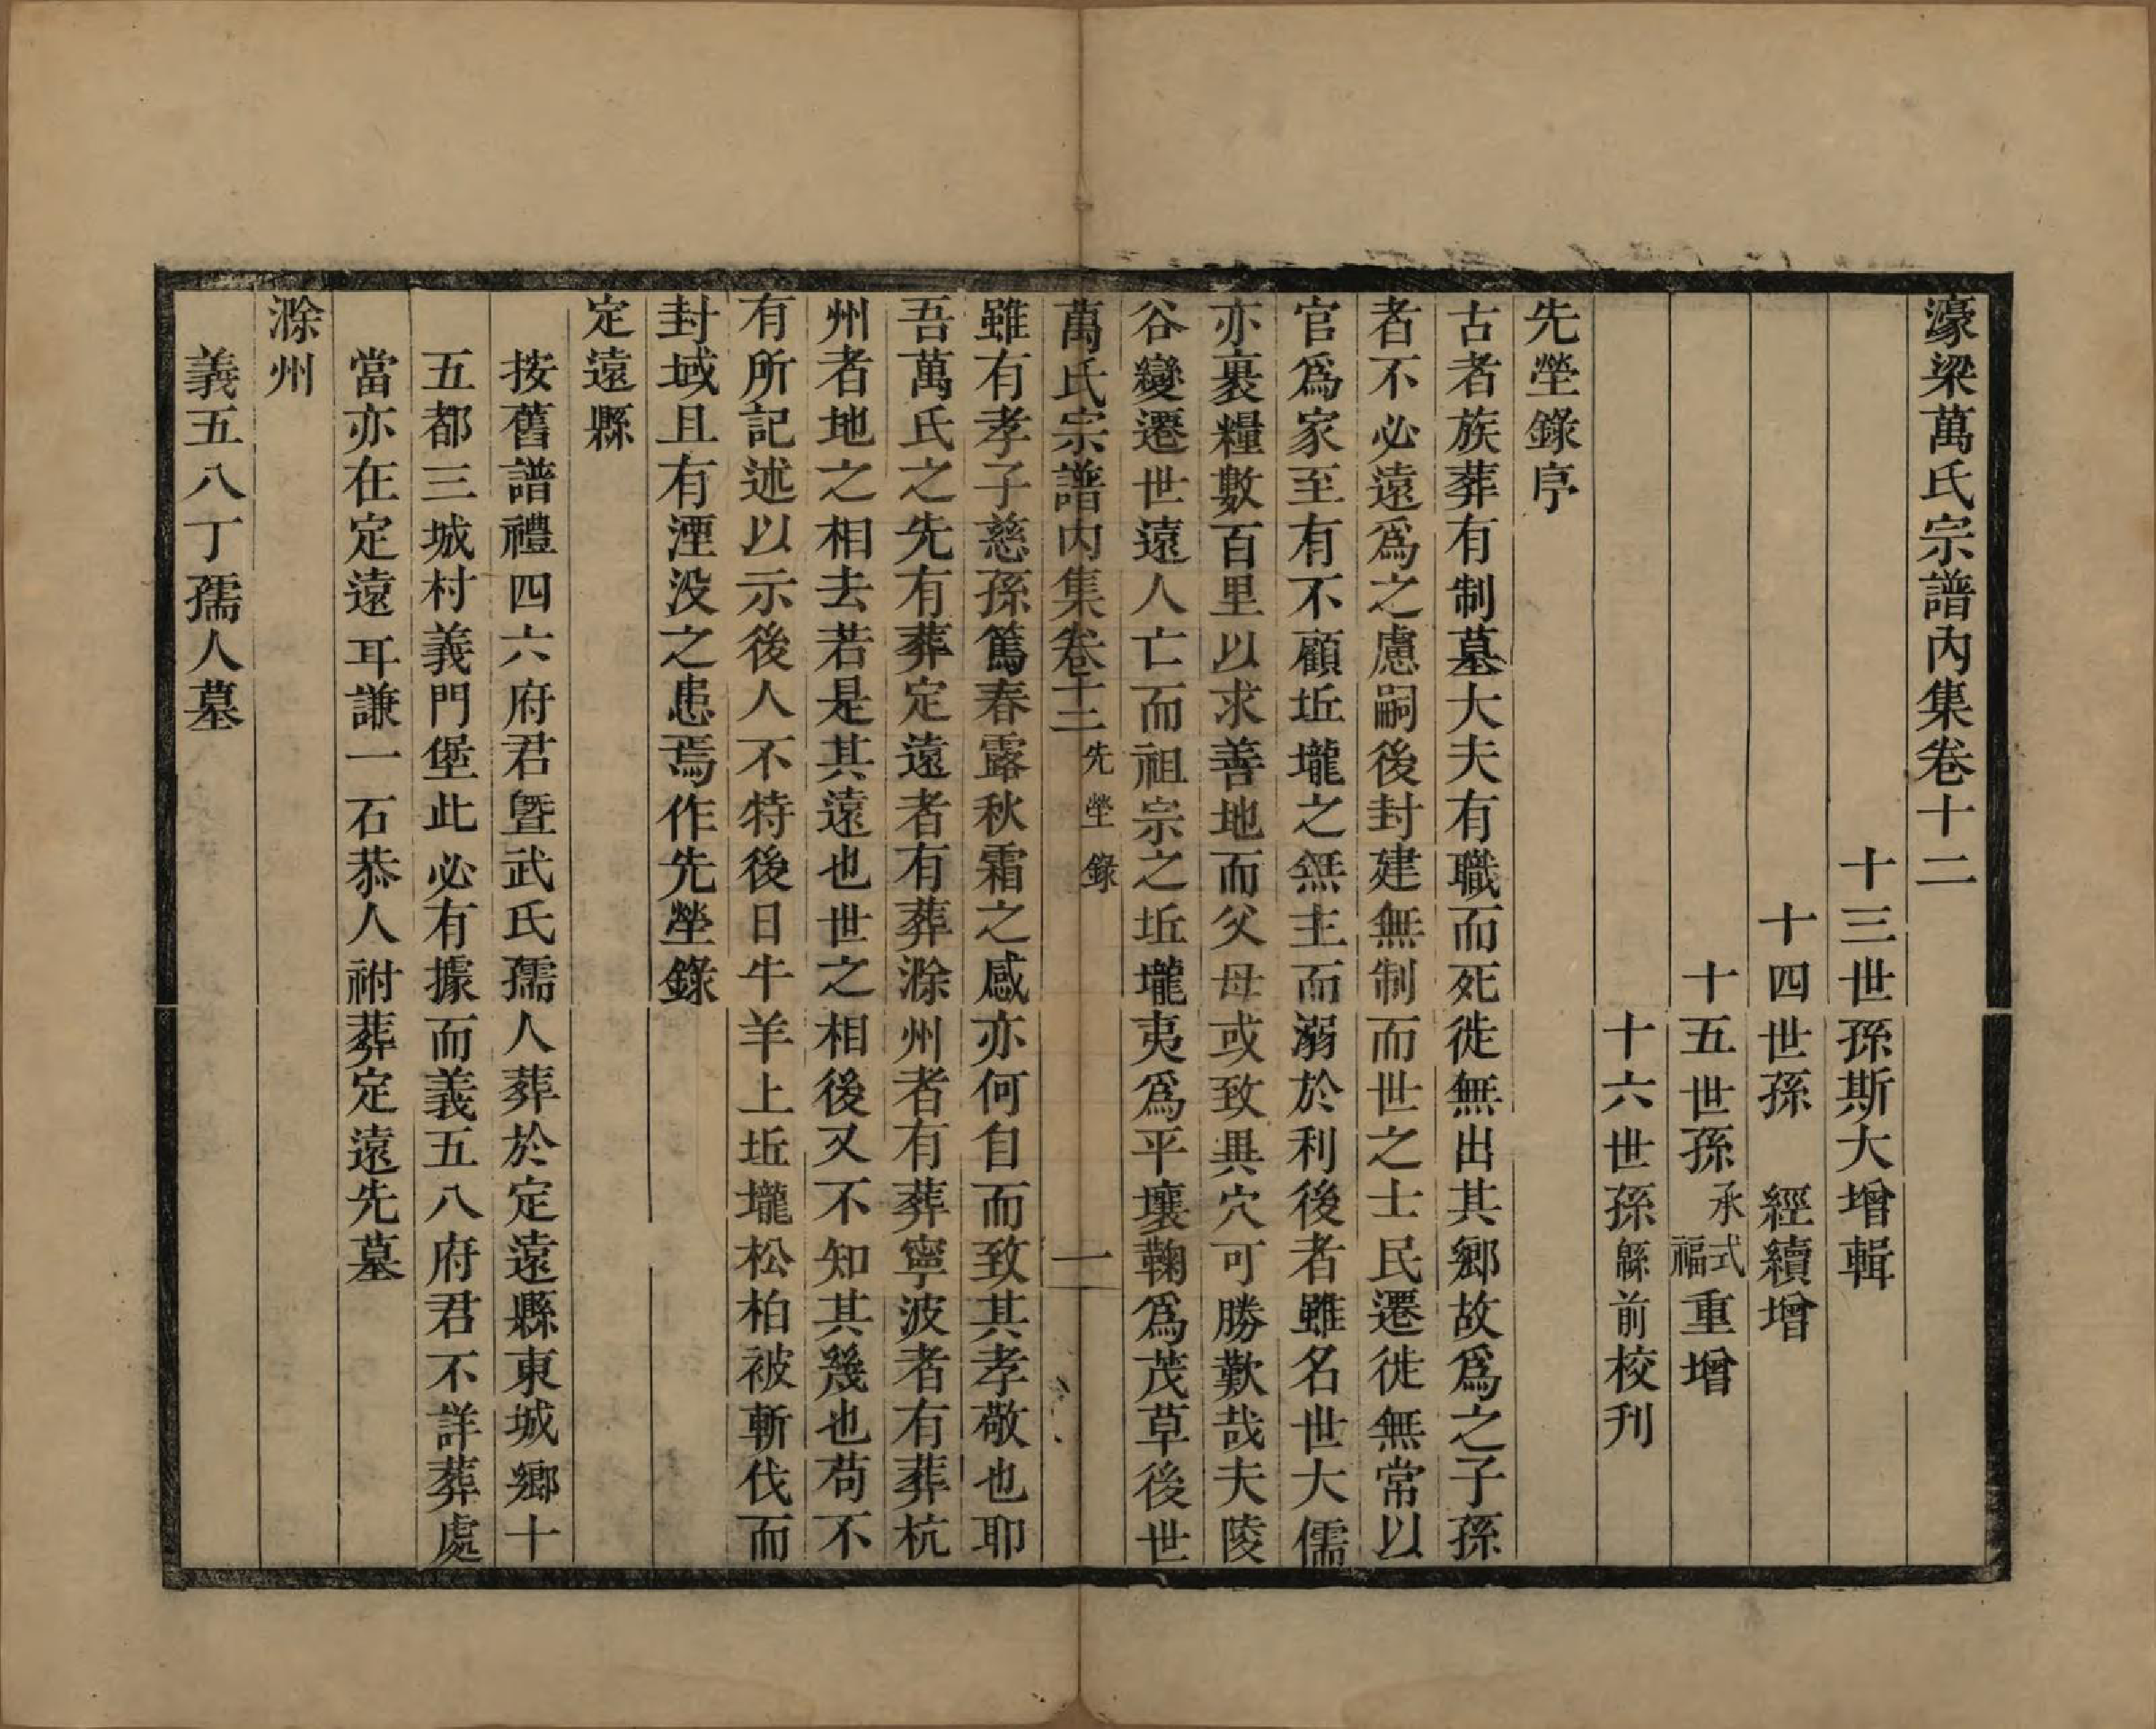 濠梁萬氏宗譜內集卷十二
十三世孫斯大增輯
十四世孫　經續增
十五世孫承式福重增
十六世孫縣前校刊
先塋錄序
古者族葬有制墓大夫有職而死徙無出其鄉故爲之子孫
者不必遠爲之慮嗣後封建無制而世之士民遷徙無常以
官爲家至有不顧坵壠之無主而溺於利後者雖名世大儒
亦裹糧數百里以求善地而父母或致異穴可勝歎哉夫陵
谷變遷世遠人亡而祖宗之坵壠夷爲平壤鞠爲茂草後世
萬氏宗譜內集卷十二　先塋錄　一
雖有孝子慈孫篤春露秋霜之感亦何自而致其孝敬也耶
吾萬氏之先有葬定遠者有葬滁州者有葬寧波者有葬杭
州者地之相去若是其遠也世之相後又不知其幾也苟不
有所記述以示後人不特後日牛羊上坵壠松柏被斬伐而
封域且有湮没之患焉作先塋錄
定遠縣
按舊譜禮四六府君曁武氏孺人葬於定遠縣東城鄉十
五都三城村義門堡此必有據而義五八府君不詳葬處
當亦在定遠耳謙一石恭人祔葬定遠先墓
滁州
義五八丁孺人墓